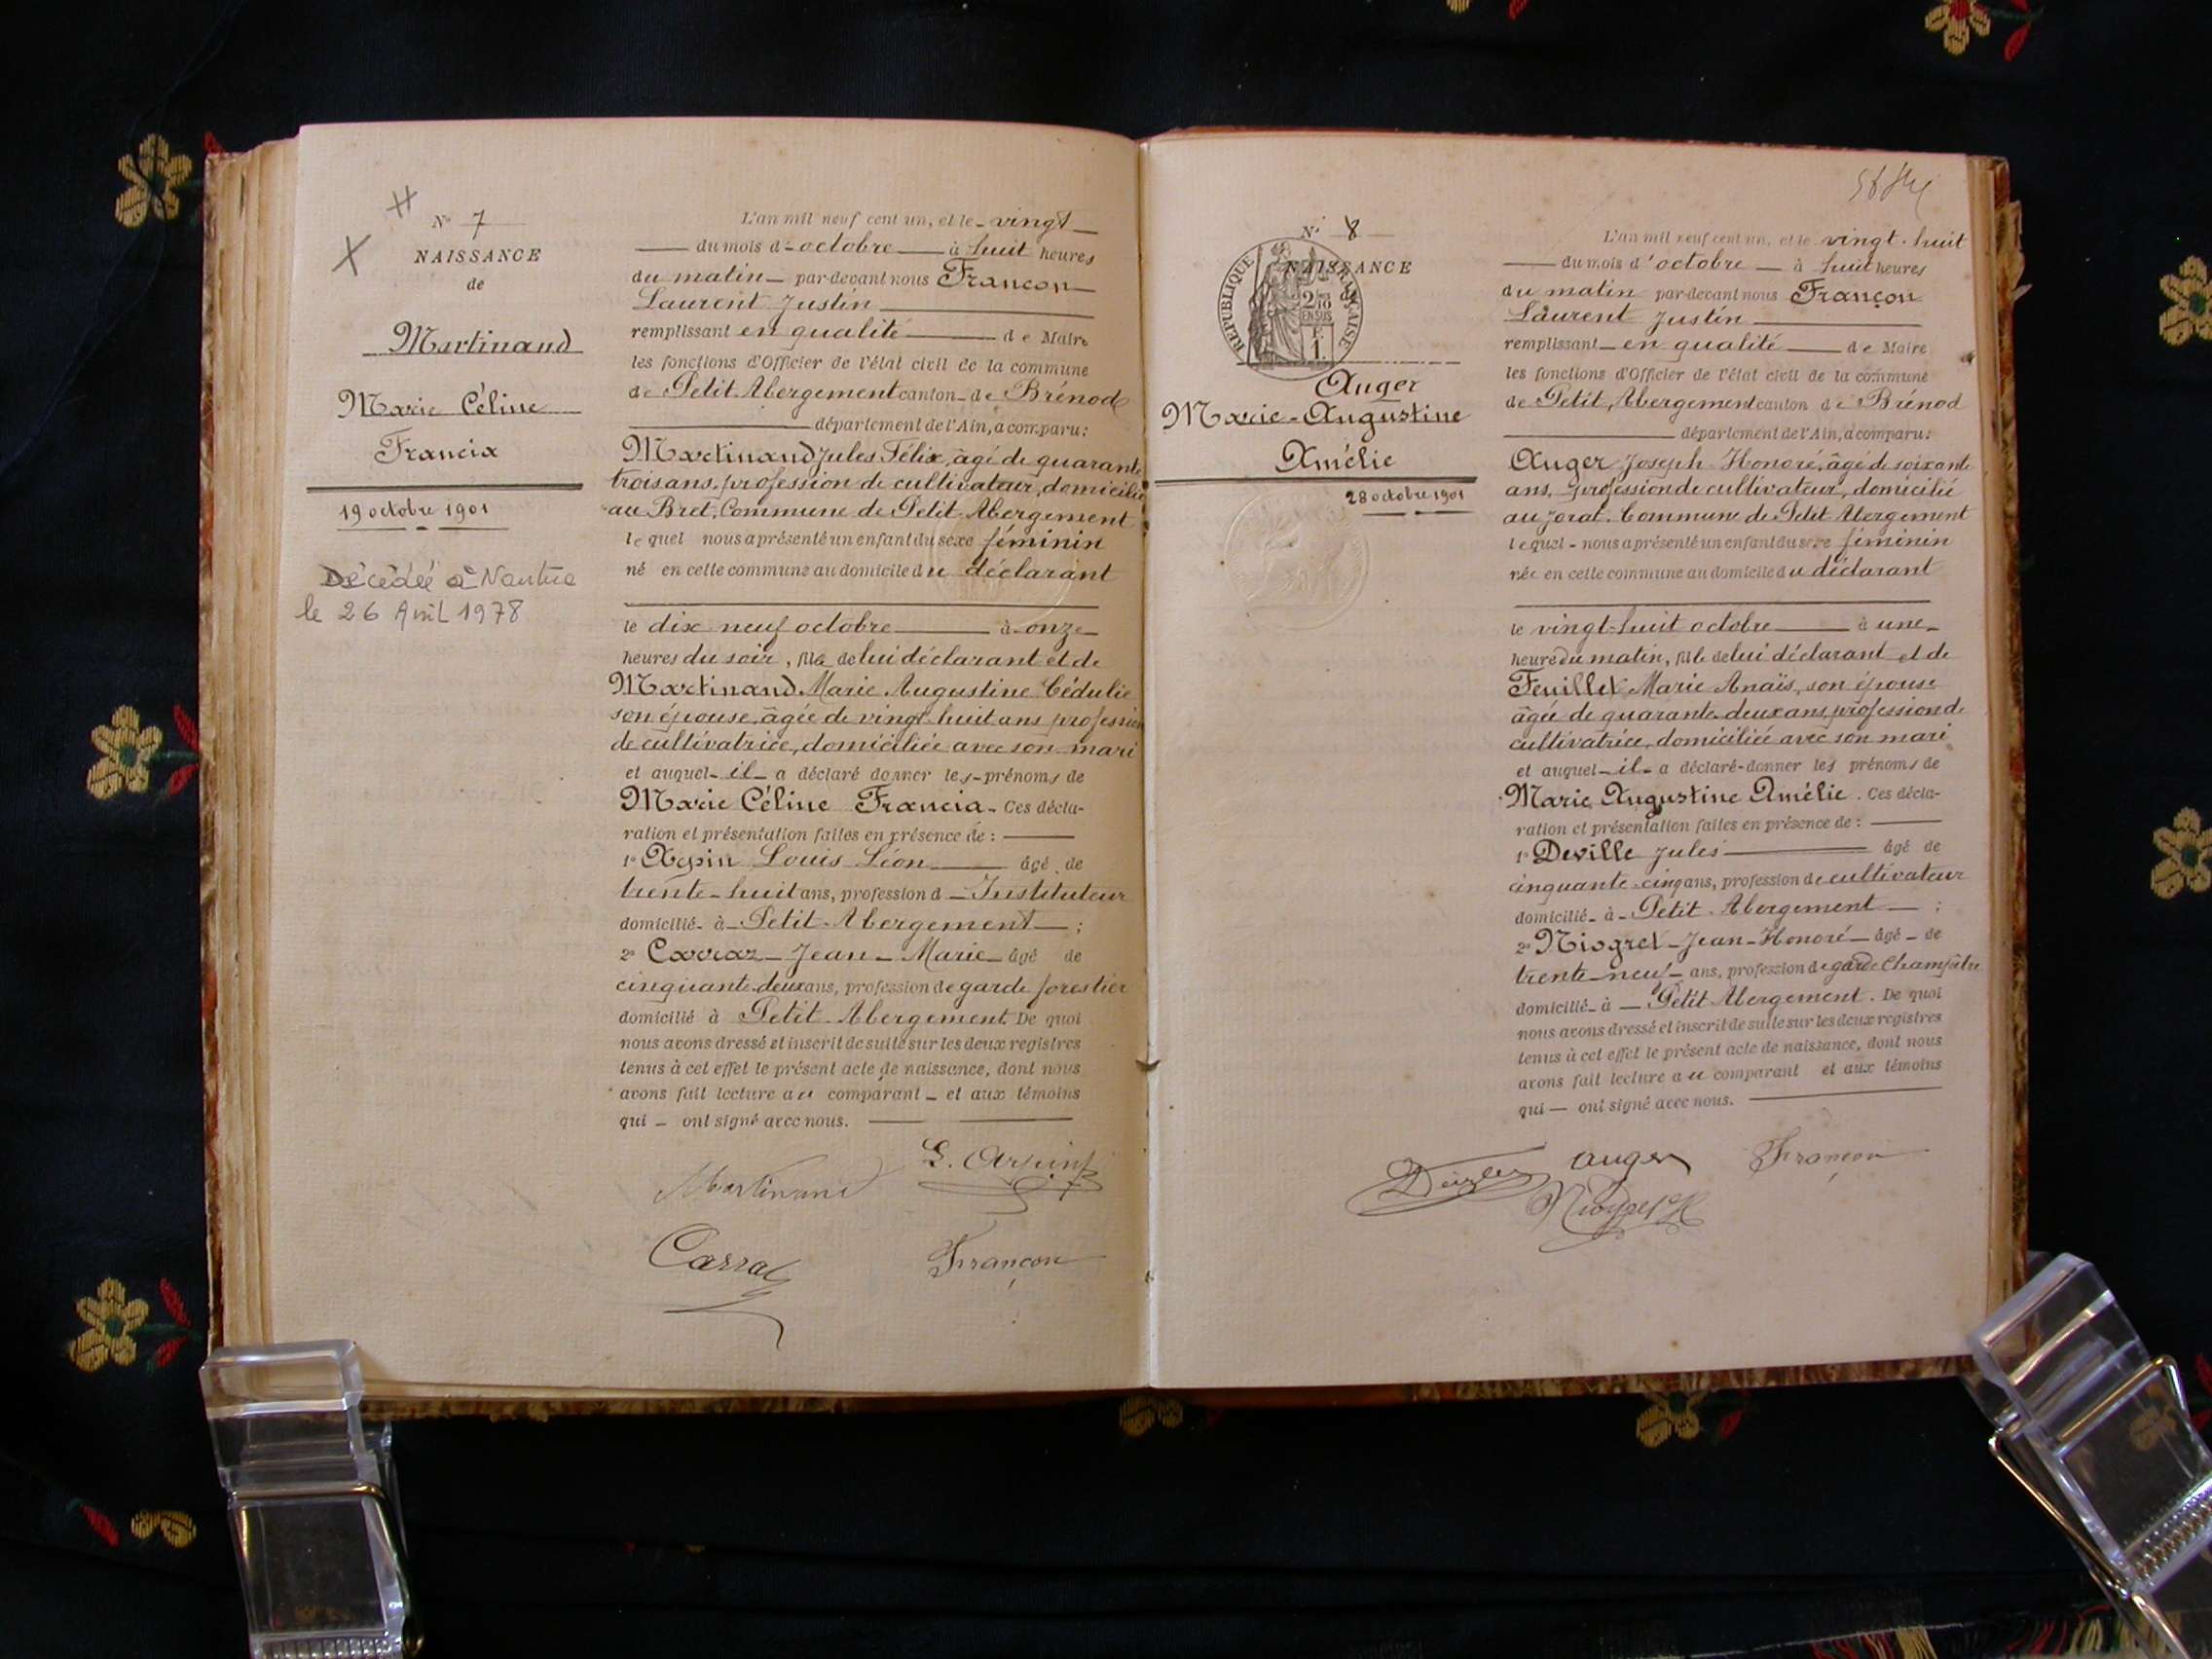 N° 7
NAISSANCE
de
Martinand
Marie Céline
Francia
19 octobre 1901
Décédée à Nantua
le 26 Avril 1978
L'an mil neuf cent un, et le - vingt
du mois d - octobre à huit heures
du matin par-devant nous Françon
Laurent Justin
remplissant en qualité de Maire
les fonctions d'Officier de l'état civil de la commune
de Petit-Abergement canton de Brénod
département de l'Ain, a comparu:
Martinand Jules Félix, âgé de quarante
trois ans, profession de cultivateur, domicilié
au Bret, Commune de Petit-Abergement
lequel nous a présenté un enfant du sexe féminin
né en cette commune au domicile du déclarant
le dix neuf octobre à onze
heures du soir, fille de lui déclarant et de
Martinand Marie Augustine Cédulie
son épouse, âgée de vingt-huit ans profession
de cultivatrice, domiciliée avec son mari
et auquel - il - a déclaré donner les prénoms de
Marie Céline Francia - Ces décla-
ration et présentation faites en présence de :
1° Arpin Louis Léon âgé de
trente-huit ans, profession d - Instituteur
domicilié - à - Petit-Abergement ;
2° Carraz - Jean - Marie - âgé de
cinquante-deux ans, profession de garde forestier
domicilié à Petit-Abergement. De quoi
nous avons dressé et inscrit de suite sur les deux registres
tenus à cet effet le présent acte de naissance, dont nous
avons fait lecture au comparant - et aux témoins
qui - ont signé avec nous.
L. Arpin
Martinand
Carraz
Françon
N° 8
NAISSANCE
de
RÉPUBLIQUE FRANÇAISE
2/10 EN SUS
F.
1.
Auger
Marie-Augustine
Amélie
28 octobre 1901
L'an mil neuf cent un, et le vingt-huit
du mois d'octobre à huit heures
du matin par-devant nous Françon
Laurent Justin
remplissant - en qualité de Maire
les fonctions d'Officier de l'état civil de la commune
de Petit-Abergement canton de Brénod
département de l'Ain, a comparu:
Auger Joseph-Honoré, âgé de soixante
ans, profession de cultivateur, domicilié
au Jorat, Commune de Petit Abergement
lequel - nous a présenté un enfant du sexe féminin
née en cette commune au domicile du déclarant
le vingt-huit octobre à une
heure du matin, fille de lui déclarant et de
Feuillet Marie Anaïs, son épouse
âgée de quarante-deux ans, profession de
cultivatrice, domiciliée avec son mari
et auquel - il - a déclaré - donner les prénoms de
Marie Augustine Amélie. Ces décla-
ration et présentation faites en présence de :
1° Deville Jules âgé de
cinquante-cinq ans, profession de cultivateur
domicilié - à - Petit-Abergement ;
2° Niogret - Jean - Honoré - âgé - de
trente-neuf - ans, profession de garde Champêtre
domicilié - à - Petit Abergement. De quoi
nous avons dressé et inscrit de suite sur les deux registres
tenus à cet effet le présent acte de naissance, dont nous
avons fait lecture au comparant et aux témoins
qui - ont signé avec nous.
Auger
Françon